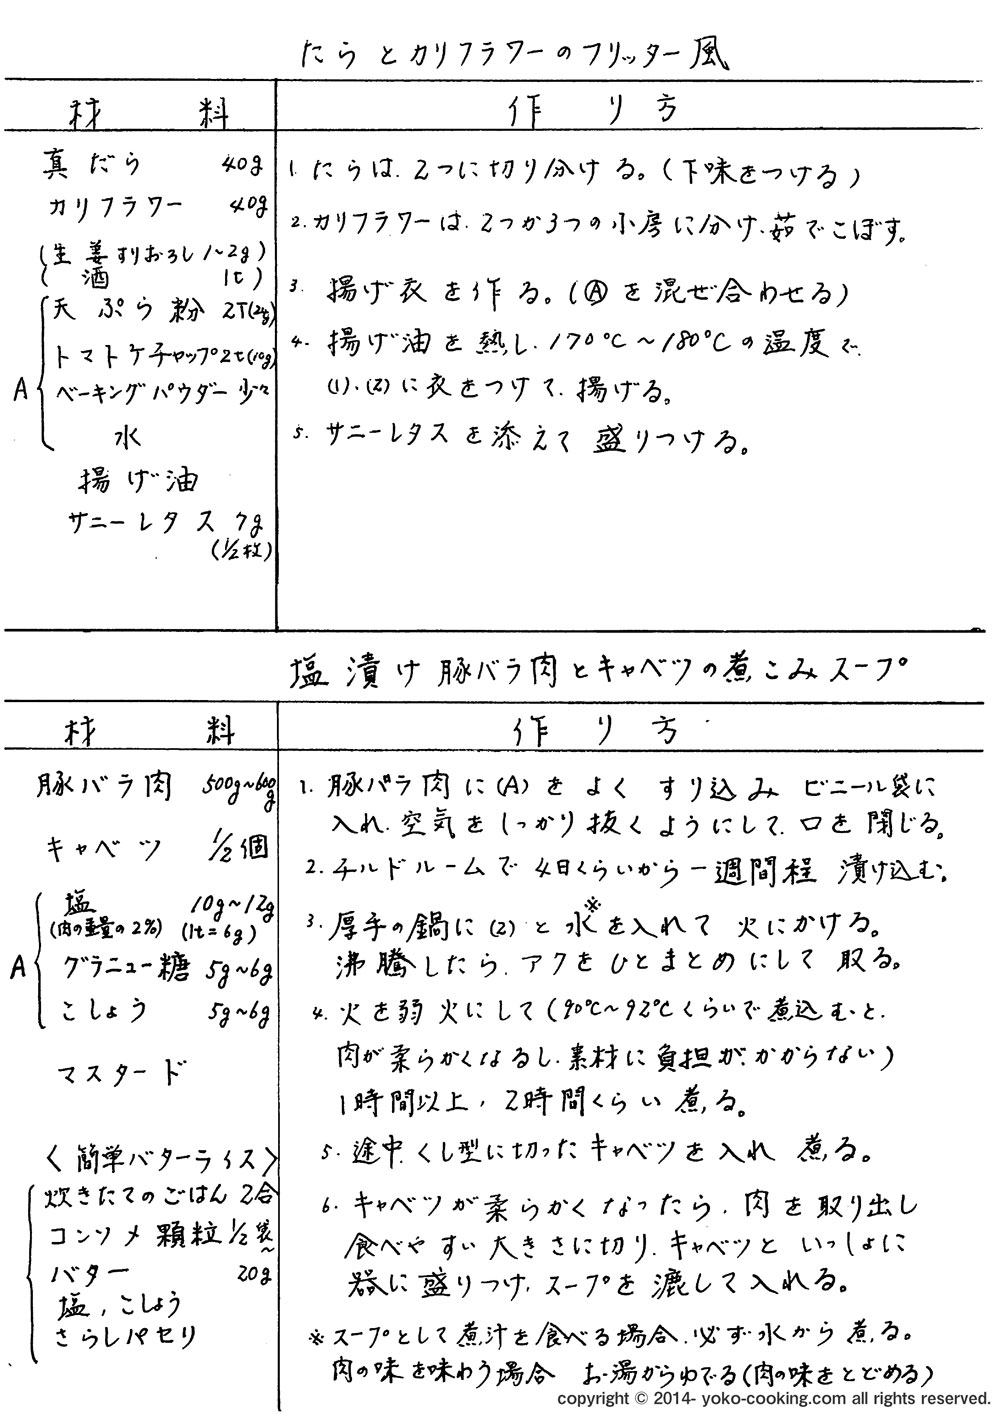 たらとカリフラワーのフリッター風
材 料
作 り 方
真だら 40g
カリフラワー 40g
(生姜すりおろし 1〜2g)
( 酒 1t)
A
天ぷら粉 2T(24g)
トマトケチャップ2t(10g)
ベーキングパウダー 少々
水
揚げ油
サニーレタス 7g
(1/2枚)
1. たらは、2つに切り分ける。(下味をつける)
2. カリフラワーは、2つか3つの小房に分け、茹でこぼす。
3. 揚げ衣を作る。(Ⓐを混ぜ合わせる)
4. 揚げ油を熱し、170℃〜180℃の温度で、
(1)、(2)に衣をつけて、揚げる。
5. サニーレタスを添えて盛りつける。
塩漬け豚バラ肉とキャベツの煮こみスープ
材 料
作 り 方
豚バラ肉 500g〜600g
キャベツ 1/2個
A
塩 10g〜12g
(肉の重量の2%) (1t=6g)
グラニュー糖 5g〜6g
こしょう 5g〜6g
マスタード
〈簡単バターライス〉
炊きたてのごはん 2合
コンソメ顆粒 1/2袋〜
バター 20g
塩、こしょう
さらしパセリ
1. 豚バラ肉に(A)をよくすり込み ビニール袋に
入れ、空気をしっかり抜くようにして、口を閉じる。
2. チルドルームで4日くらいから一週間程 漬け込む。
3. 厚手の鍋に(2)と水※を入れて火にかける。
沸騰したら、アクをひとまとめにして取る。
4. 火を弱火にして(90℃〜92℃くらいで煮込むと、
肉が柔らかくなるし、素材に負担がかからない)
1時間以上、2時間くらい煮る。
5. 途中、くし型に切ったキャベツを入れ 煮る。
6. キャベツが柔らかくなったら、肉を取り出し
食べやすい大きさに切り、キャベツといっしょに
器に盛りつけ、スープを漉して入れる。
※スープとして煮汁を食べる場合、必ず水から煮る。
肉の味を味わう場合 お湯からゆでる(肉の味をとどめる)
copyright © 2014- yoko-cooking.com all rights reserved.